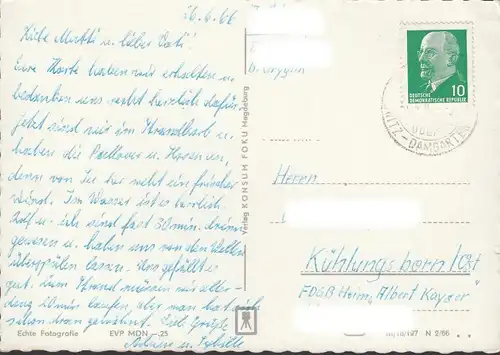 26.6.66
Liebe Mutti u. lieber Vati!
Eure Karte haben wir erhalten u.
bedanken uns recht herzlich dafür.
Jetzt sind wir im Strandkorb u.
haben die Pullover u. Hosen an,
denn von See her weht ein frischer
Wind. Im Wasser ist es herrlich.
Rolf u. ich sind fast 30 min. drinn
gewesen u. haben uns von den Wellen
überspülen lassen. Uns gefällt es
gut. Zum Strand müssen wir aller-
dings 20 min laufen aber man hat sich
schon dran gewöhnt. Viele Grüße
u. Sybille
Echte Fotografie EVP MDN -.25
Verlag KONSUM FOKU Magdeburg
DEUTSCHE
DEMOKRATISCHE REPUBLIK
10
RIBNITZ-DAMGARTEN
Herrn
Kühlungsborn/Ost
FDGB Heim „Albert Kayser"
III/18/197 N 2/66